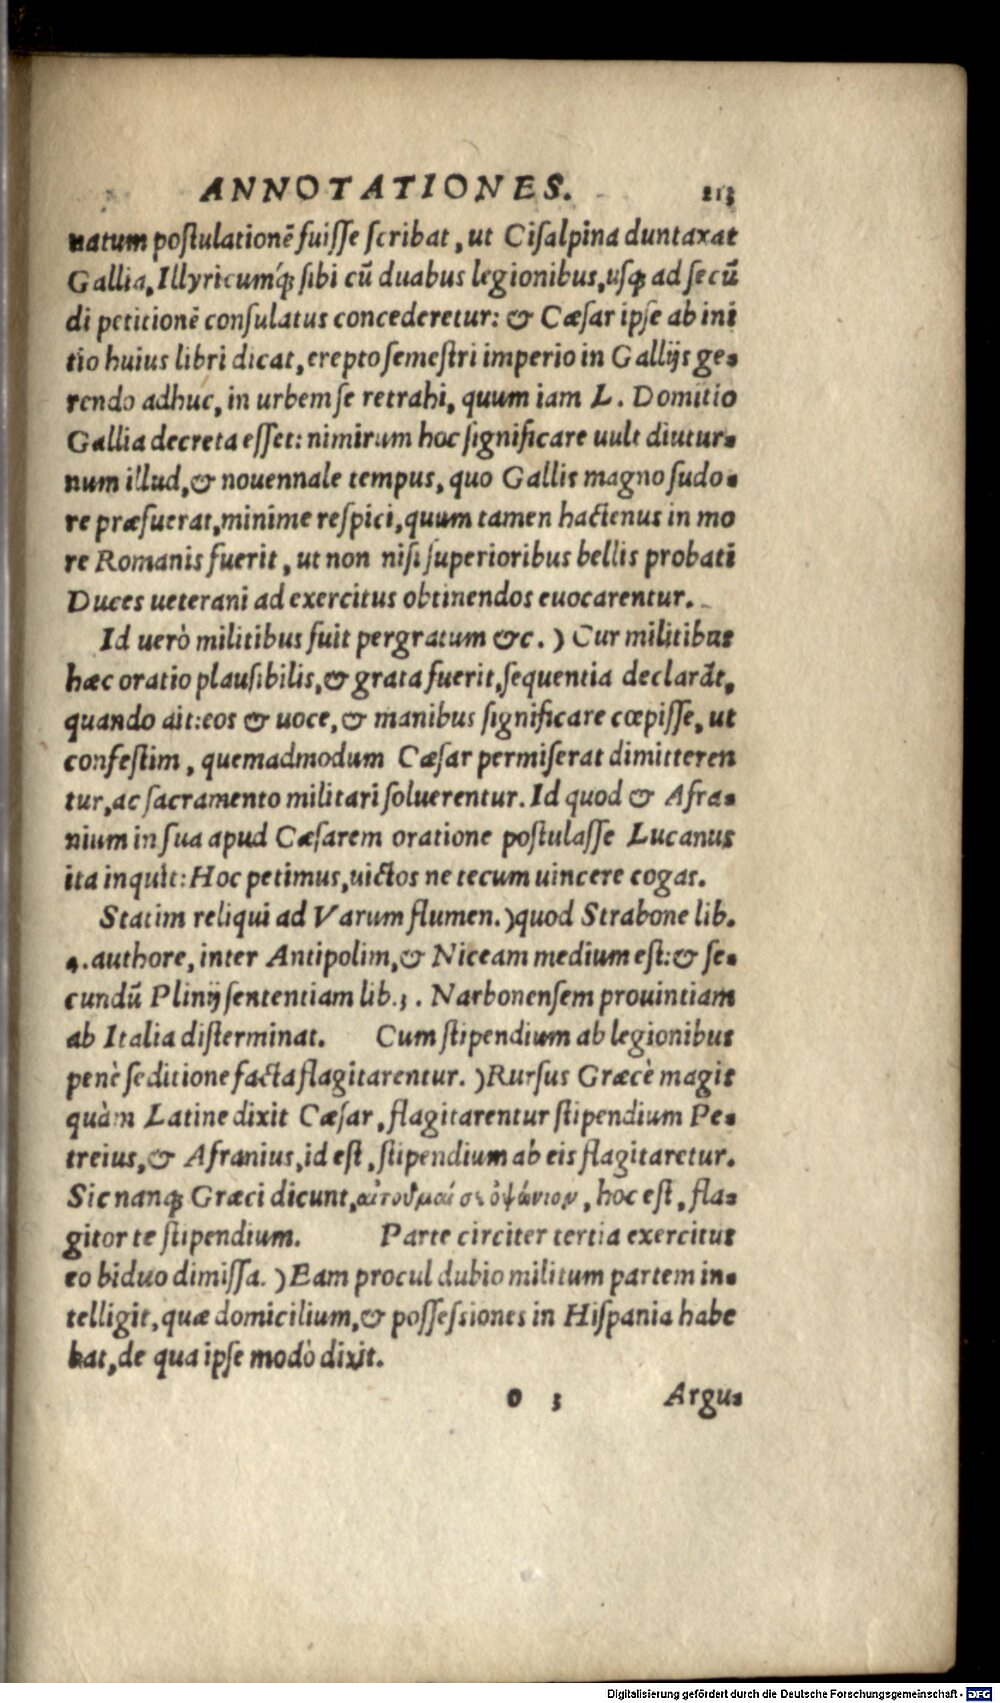 ANNOTATIONES. 213
natum poſtulationē fuiſſe ſcribat, ut Ciſalpina duntaxat
Gallia, Illyricumq́; ſibi cū duabus legionibus, uſq; ad ſecū
di petitionē conſulatus concederetur: & Cæſar ipſe ab ini
tio huius libri dicat, erepto ſemeſtri imperio in Gallijs ge-
rendo adhuc, in urbem ſe retrahi, quum iam L. Domitio
Gallia decreta eſſet: nimirum hoc ſignificare uult diutur-
num illud, & nouennale tempus, quo Gallis magno ſudo-
re præfuerat, minime reſpici, quum tamen hactenus in mo
re Romanis fuerit, ut non niſi ſuperioribus bellis probati
Duces ueterani ad exercitus obtinendos euocarentur.
Id uerò militibus fuit pergratum &c.) Cur militibus
hæc oratio plauſibilis, & grata fuerit, ſequentia declarāt,
quando ait: eos & uoce, & manibus ſignificare cœpiſſe, ut
confeſtim, quemadmodum Cæſar permiſerat dimitteren
tur, ac ſacramento militari ſoluerentur. Id quod & Afra-
nium in ſua apud Cæſarem oratione poſtulaſſe Lucanus
ita inquit: Hoc petimus, uictos ne tecum uincere cogas.
Statim reliqui ad Varum flumen.) quod Strabone lib.
4. authore, inter Antipolim, & Niceam medium eſt: & ſe-
cundū Plinij ſententiam lib. 3. Narbonenſem prouintiam
ab Italia diſterminat. Cum ſtipendium ab legionibus
penè ſeditione facta flagitarentur.) Rurſus Græcè magis
quàm Latine dixit Cæſar, flagitarentur ſtipendium Pe-
treius, & Afranius, id eſt, ſtipendium ab eis flagitaretur.
Sic nanq; Græci dicunt, αἰτοῦμαί σε ὀψώνιον, hoc eſt, fla-
gitor te ſtipendium. Parte circiter tertia exercitus
eo biduo dimiſſa.) Eam procul dubio militum partem in-
telligit, quæ domicilium, & poſſeſsiones in Hiſpania habe
bat, de qua ipſe modò dixit.
o 3 Argu-
Digitalisierung gefördert durch die Deutsche Forschungsgemeinschaft - DFG